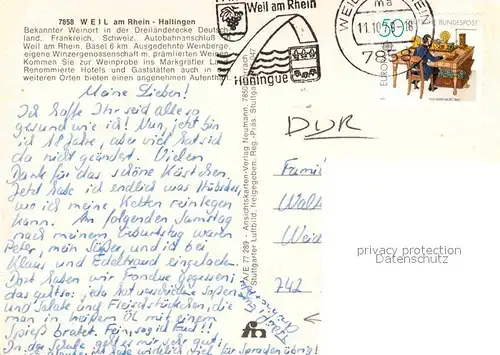 7858 WEIL am Rhein - Haltingen
Bekannter Weinort in der Dreiländerecke Deutsch
land, Frankreich, Schweiz. Autobahnanschluß
Weil am Rhein, Basel 6 km. Ausgedehnte Weinberge,
eigene Winzergenossenschaft, prämiierte Weine.
Kommen Sie zur Weinprobe ins Markgräfler
Renommierte Hotels und Gaststätten auch in
weiteren Orten bieten einen angenehmen Aufenthalt
Weil am Rhein
Huningue
WEIL RHEIN
ma
11.10
-18
7858
50
DEUTSCHE BUNDESPOST
EUROPA
Meine Lieben!
Ich hoffe Ihr seid alle so
gesund wie ich! Nun, jetzt bin
ich 18 Jahre, aber viel hat sich
da nicht geändert. Vielen
Dank für das schöne Kästchen.
Jetzt habe ich endlich was Hübsches,
wo ich meine Ketten reinlegen
kann. Am folgenden Samstag
nach meinem Geburtstag waren
Peter, mein Süßer, und ich bei
Klaus und Edeltraud eingeladen.
Dort haben wir Fondue gegessen;
das gibt so: jeder hat verschiedene Soßen
und Salate und Fleischstückchen, die
man in heißem Öl mit einem
Spieß bratet. Fein, sag ich Euch!!
In der Schule geht es mir sehr gut;
DDR
Famil
Walt
Weid
742
SA/E 77 289 - Ansichtskarten-Verlag Neumann, 7850 Lörrach
Stuttgarter Luftbild, freigegeben, Reg.-Präs. Stuttgart
privacy protection